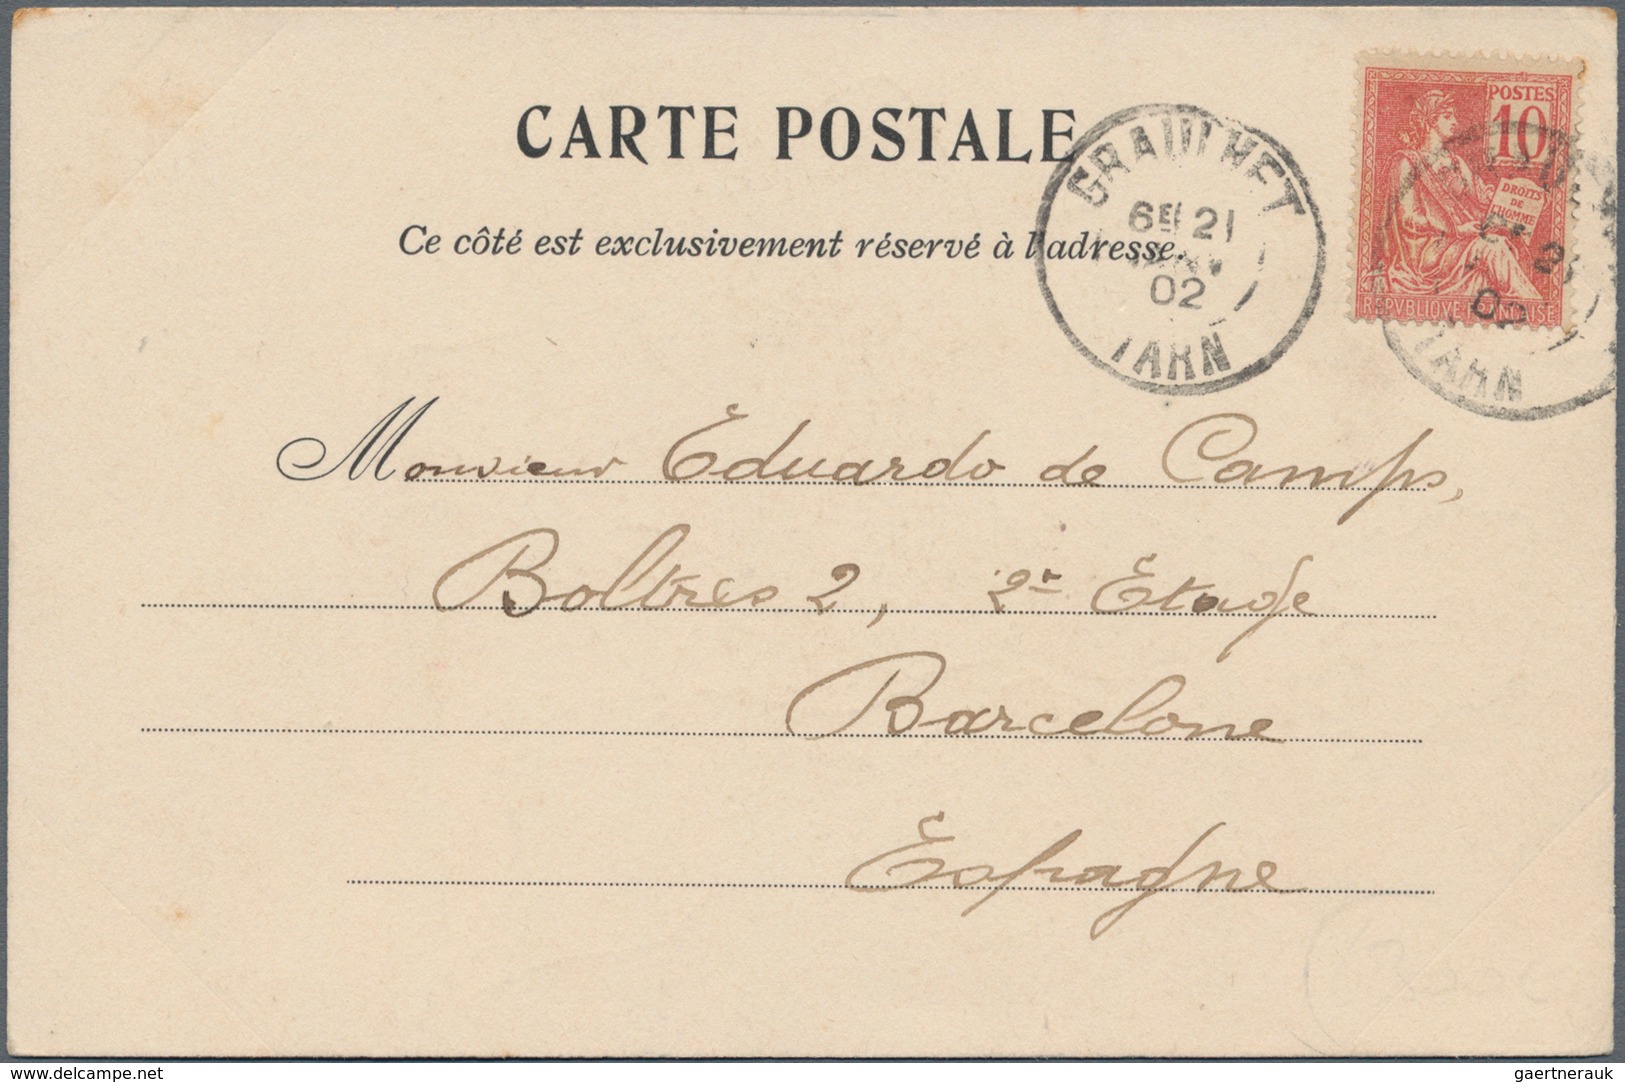 CARTE POSTALE
Ce côté est exclusivement réservé à l'adresse.
GRAULHET
6E 21
JANV
02
TARN
POSTES
10
DROITS
DE
L'HOMME
REPVBLIQVE FRANÇAISE
02
TARN
Monsieur Éduardo de Camps,
Boltres 2, 2r Étage
Barcelone
Éspagne
www.delcampe.net
gaertnerauk